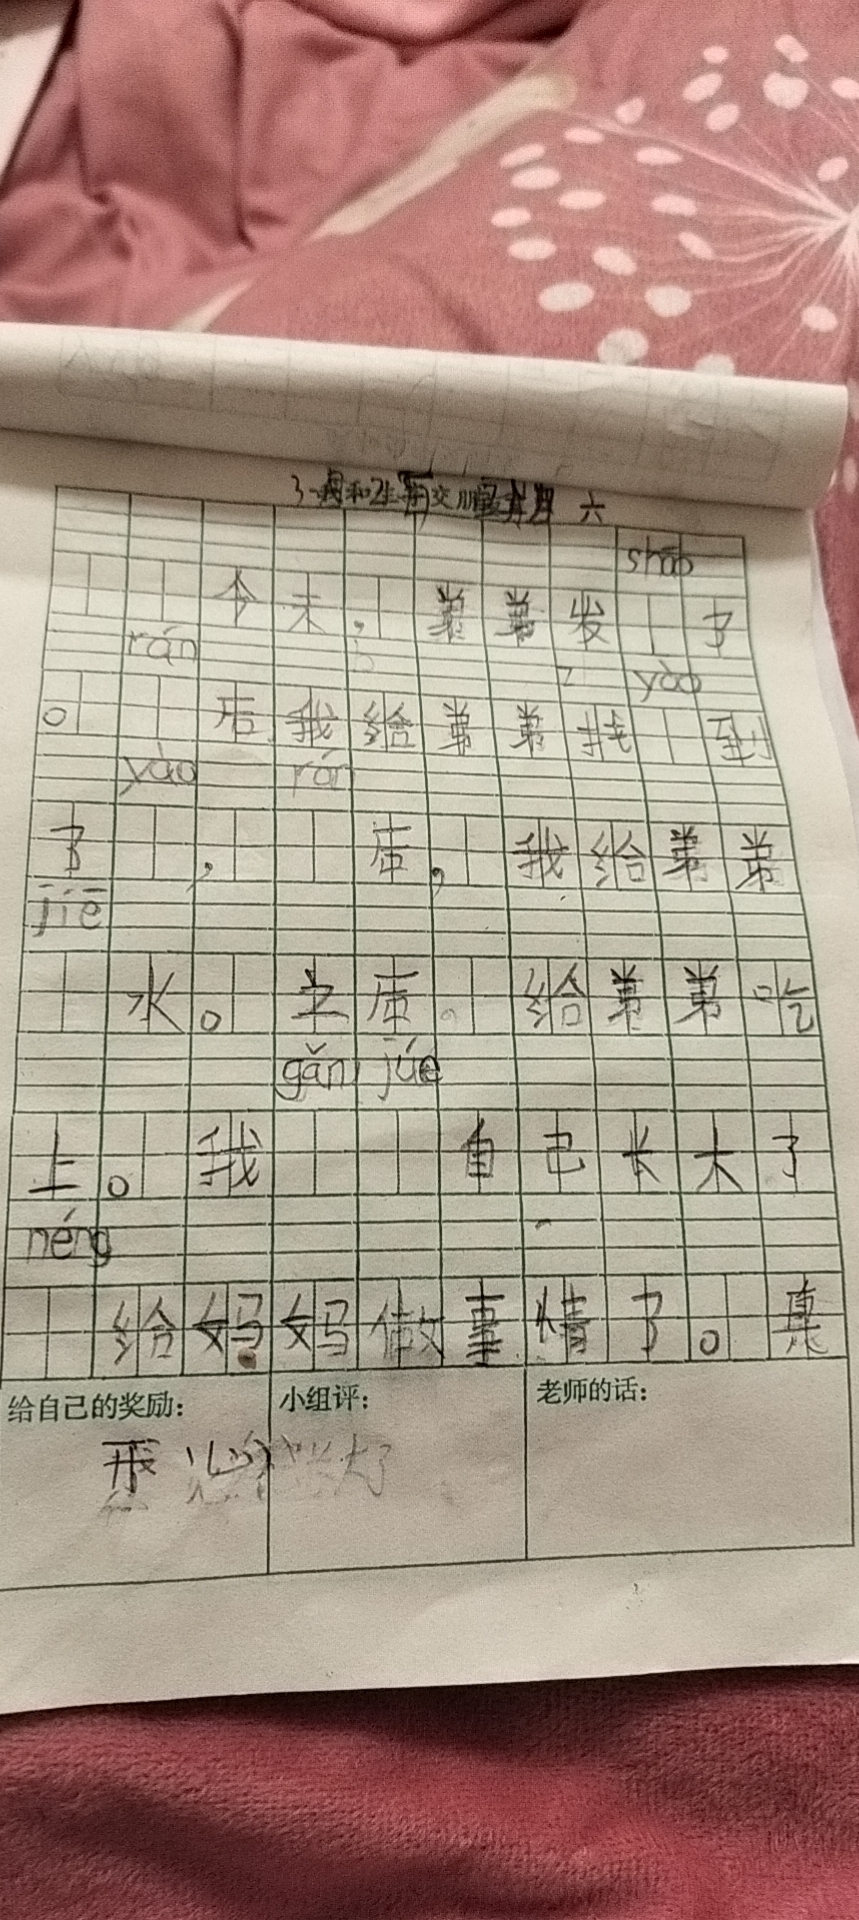 shāo
今天,弟弟发 了
rán yào
。 后我给弟弟找 到
yào rán
了 , 后,我给弟弟
jiē
水。之后。给弟弟吃
gǎn júe
上。我 自己长大了
néng
给妈妈做事情了。真
给自己的奖励: 小组评: 老师的话:
开心